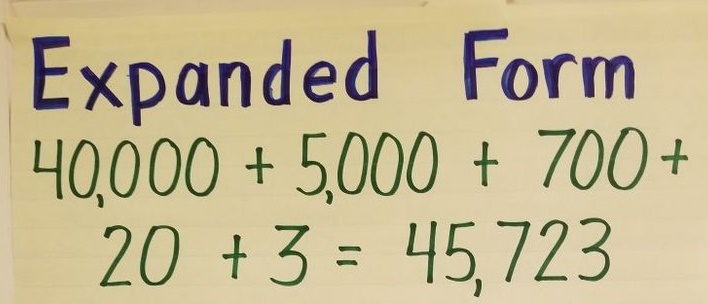 Expanded Form
40,000 + 5,000 + 700 +
20 + 3 = 45,723